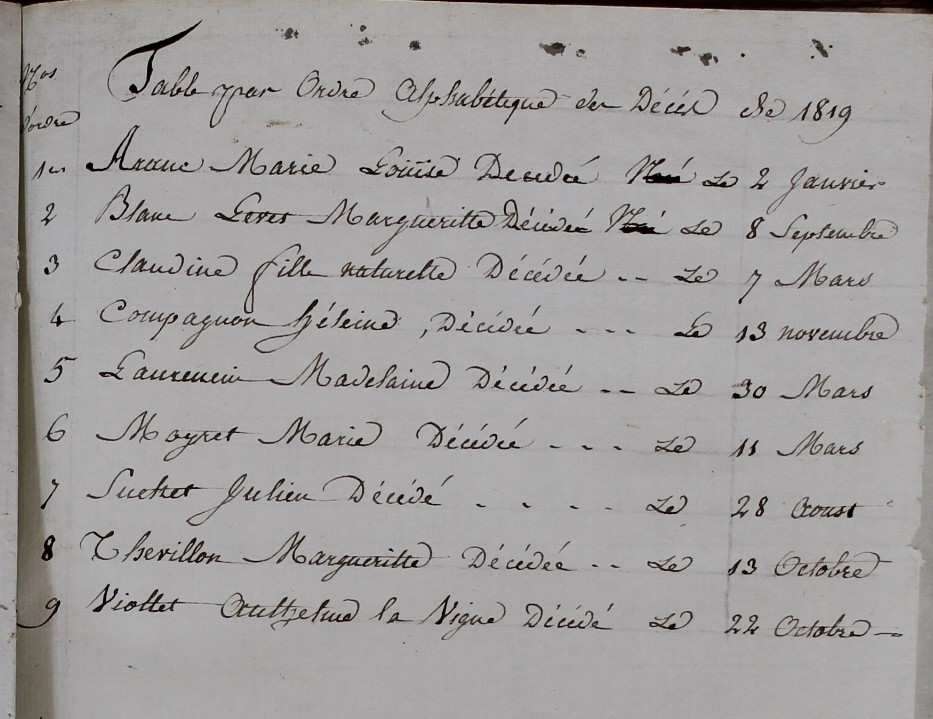 Nos
d'ordre
Table par Ordre Alphabétique des Décès de 1819
1er Marie Louise Décédée Le 2 Janvier
2 Blanc Margueritte Décédée Le 8 Septembre
3 Claudine fille naturelle Décédée -- Le 7 Mars
4 Compagnon héleine, Décédée --- Le 13 novembre
5 Laurencin Madelaine Décédée -- Le 30 Mars
6 Moyret Marie Décédée --- Le 11 Mars
7 Suchet Julien Décédé ---- Le 28 Aoust
8 Thevillon Margueritte Décédée -- Le 13 Octobre
9 Viollet Anthelme la Vigne Décédé Le 22 Octobre -